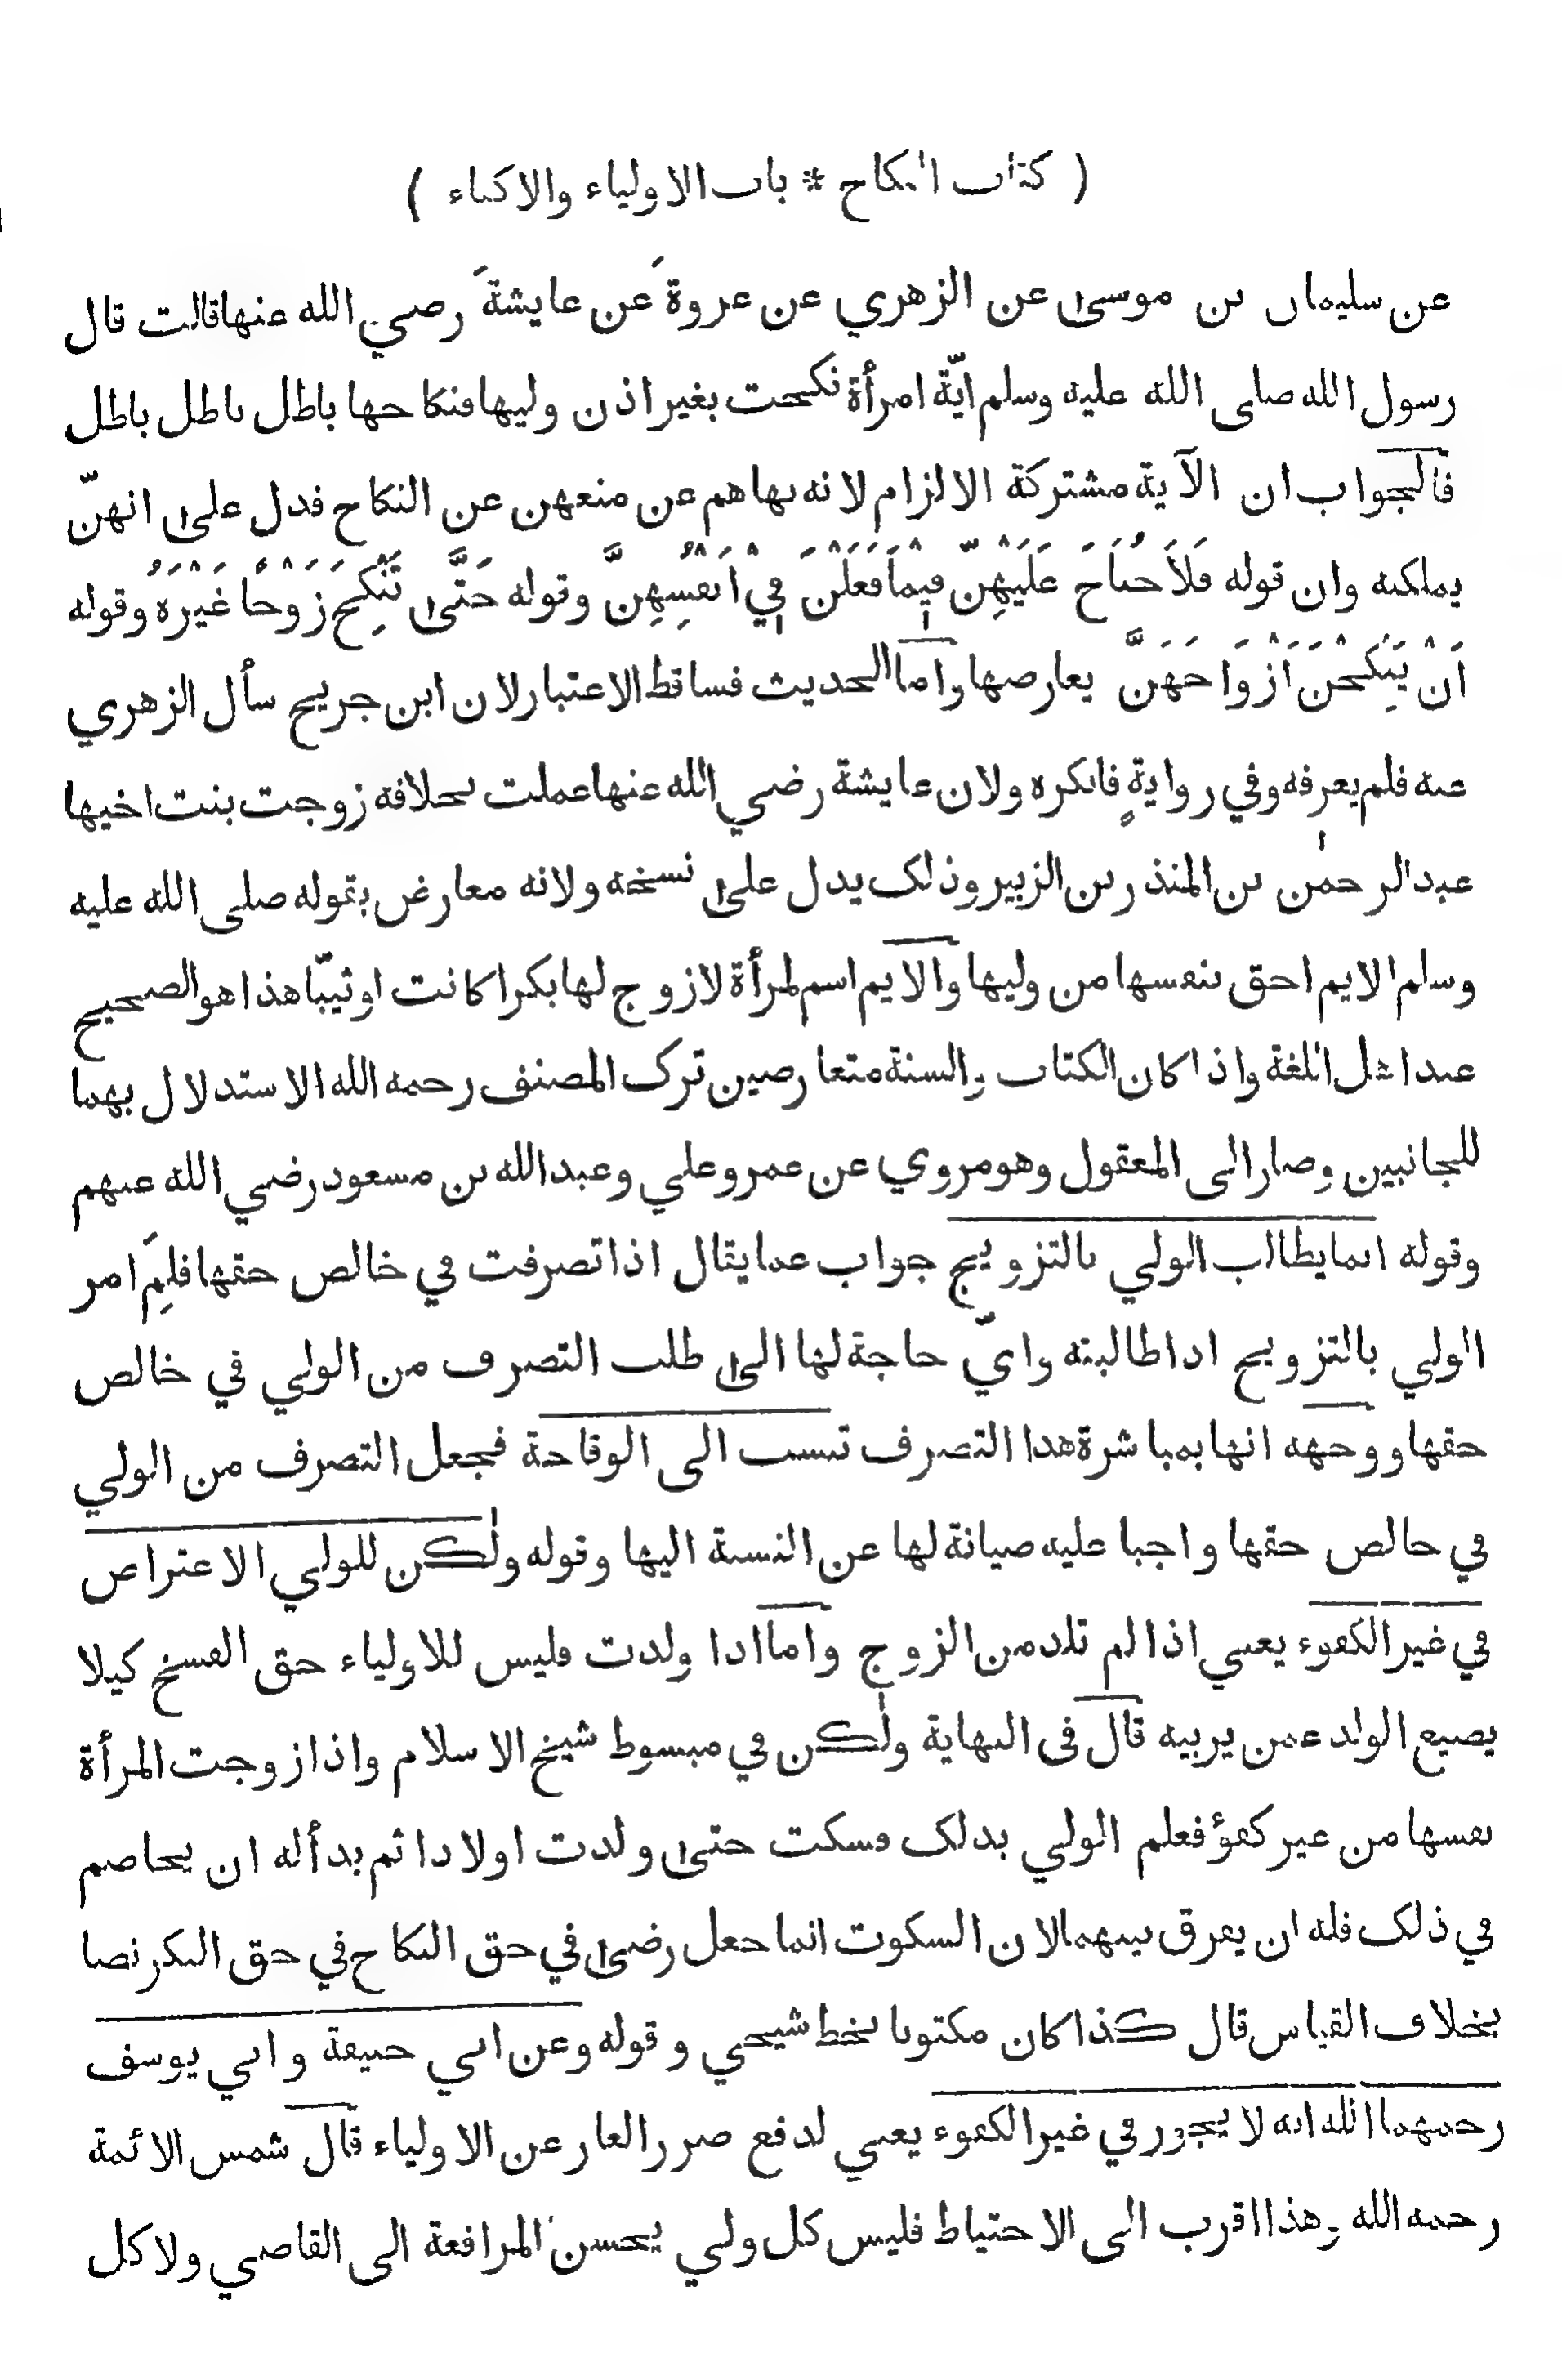 ( كتاب النكاح * باب الاولياء والاكفاء )
عن سليمان بن موسىٰ عن الزهري عن عروة عن عايشة رضي الله عنها قالت قال
رسول الله صلى الله عليه وسلم ايّة امرأة نكحت بغير اذن وليها فنكاحها باطل باطل باطل
فالجواب ان الآية مشتركة الالزام لانه نهاهم عن منعهن عن النكاح فدل علىٰ انهنّ
يملكنه وان قوله فَلاَ جُنَاحَ عَلَيْهِنّ فِيْمَا فَعَلْنَ فِيْ اَنْفُسِهِنَّ وقوله حَتَّىٰ تَنْكِحَ زَوْجًا غَيْرَهُ وقوله
اَنْ يَنْكِحْنَ اَزْوَاجَهُنَّ يعارضها واما الحديث فساقط الاعتبار لان ابن جريج سأل الزهري
عنه فلم يعرفه وفي روايةٍ فانكره ولان عايشة رضي الله عنها عملت بخلافه زوجت بنت اخيها
عبد الرحمٰن بن المنذر بن الزبير وذلک يدل علىٰ نسخه ولانه معارض بقوله صلى الله عليه
وسلم الايم احق بنفسها من وليها والايم اسم لمرأة لا زوج لها بكرا كانت او ثيّبا هذا هو الصحيح
عند اهل اللغة واذا كان الكتاب والسنة متعارضين ترک المصنف رحمه الله الاستدلال بهما
للجانبين وصار الى المعقول وهو مروي عن عمر وعلي وعبد الله بن مسعود رضي الله عنهم
وقوله انما يطالب الولي بالتزويج جواب عما يقال اذا تصرفت في خالص حقها فلِمَ امر
الولي بالتزويج اذا طالبته وايّ حاجة لها الىٰ طلب التصرف من الولي في خالص
حقها ووجهه انها بمباشرة هذا التصرف تنسب الى الوقاحة فجعل التصرف من الولي
في خالص حقها واجبا عليه صيانة لها عن النسبة اليها وقوله ولٰكن للولي الاعتراض
في غير الكفوء يعني اذا لم تلد من الزوج واما اذا ولدت فليس للاولياء حق الفسخ كيلا
يضيع الولد عمن يربيه قال في النهاية ولٰكن في مبسوط شيخ الاسلام واذا زوجت المرأة
نفسها من غير كفؤ فعلم الولي بذلک فسكت حتىٰ ولدت اولادا ثم بدأ له ان يخاصم
في ذلک فله ان يفرق بينهما لان السكوت انما جعل رضىٰ في حق النكاح في حق البكر نصا
بخلاف القياس قال كذا كان مكتوبا بخط شيخي وقوله وعن ابي حنيفة وابي يوسف
رحمهما الله انه لا يجوز في غير الكفوء يعني لدفع ضرر العار عن الاولياء قال شمس الائمة
رحمه الله وهذا اقرب الى الاحتياط فليس كل ولي يحسن المرافعة الى القاضي ولا كل